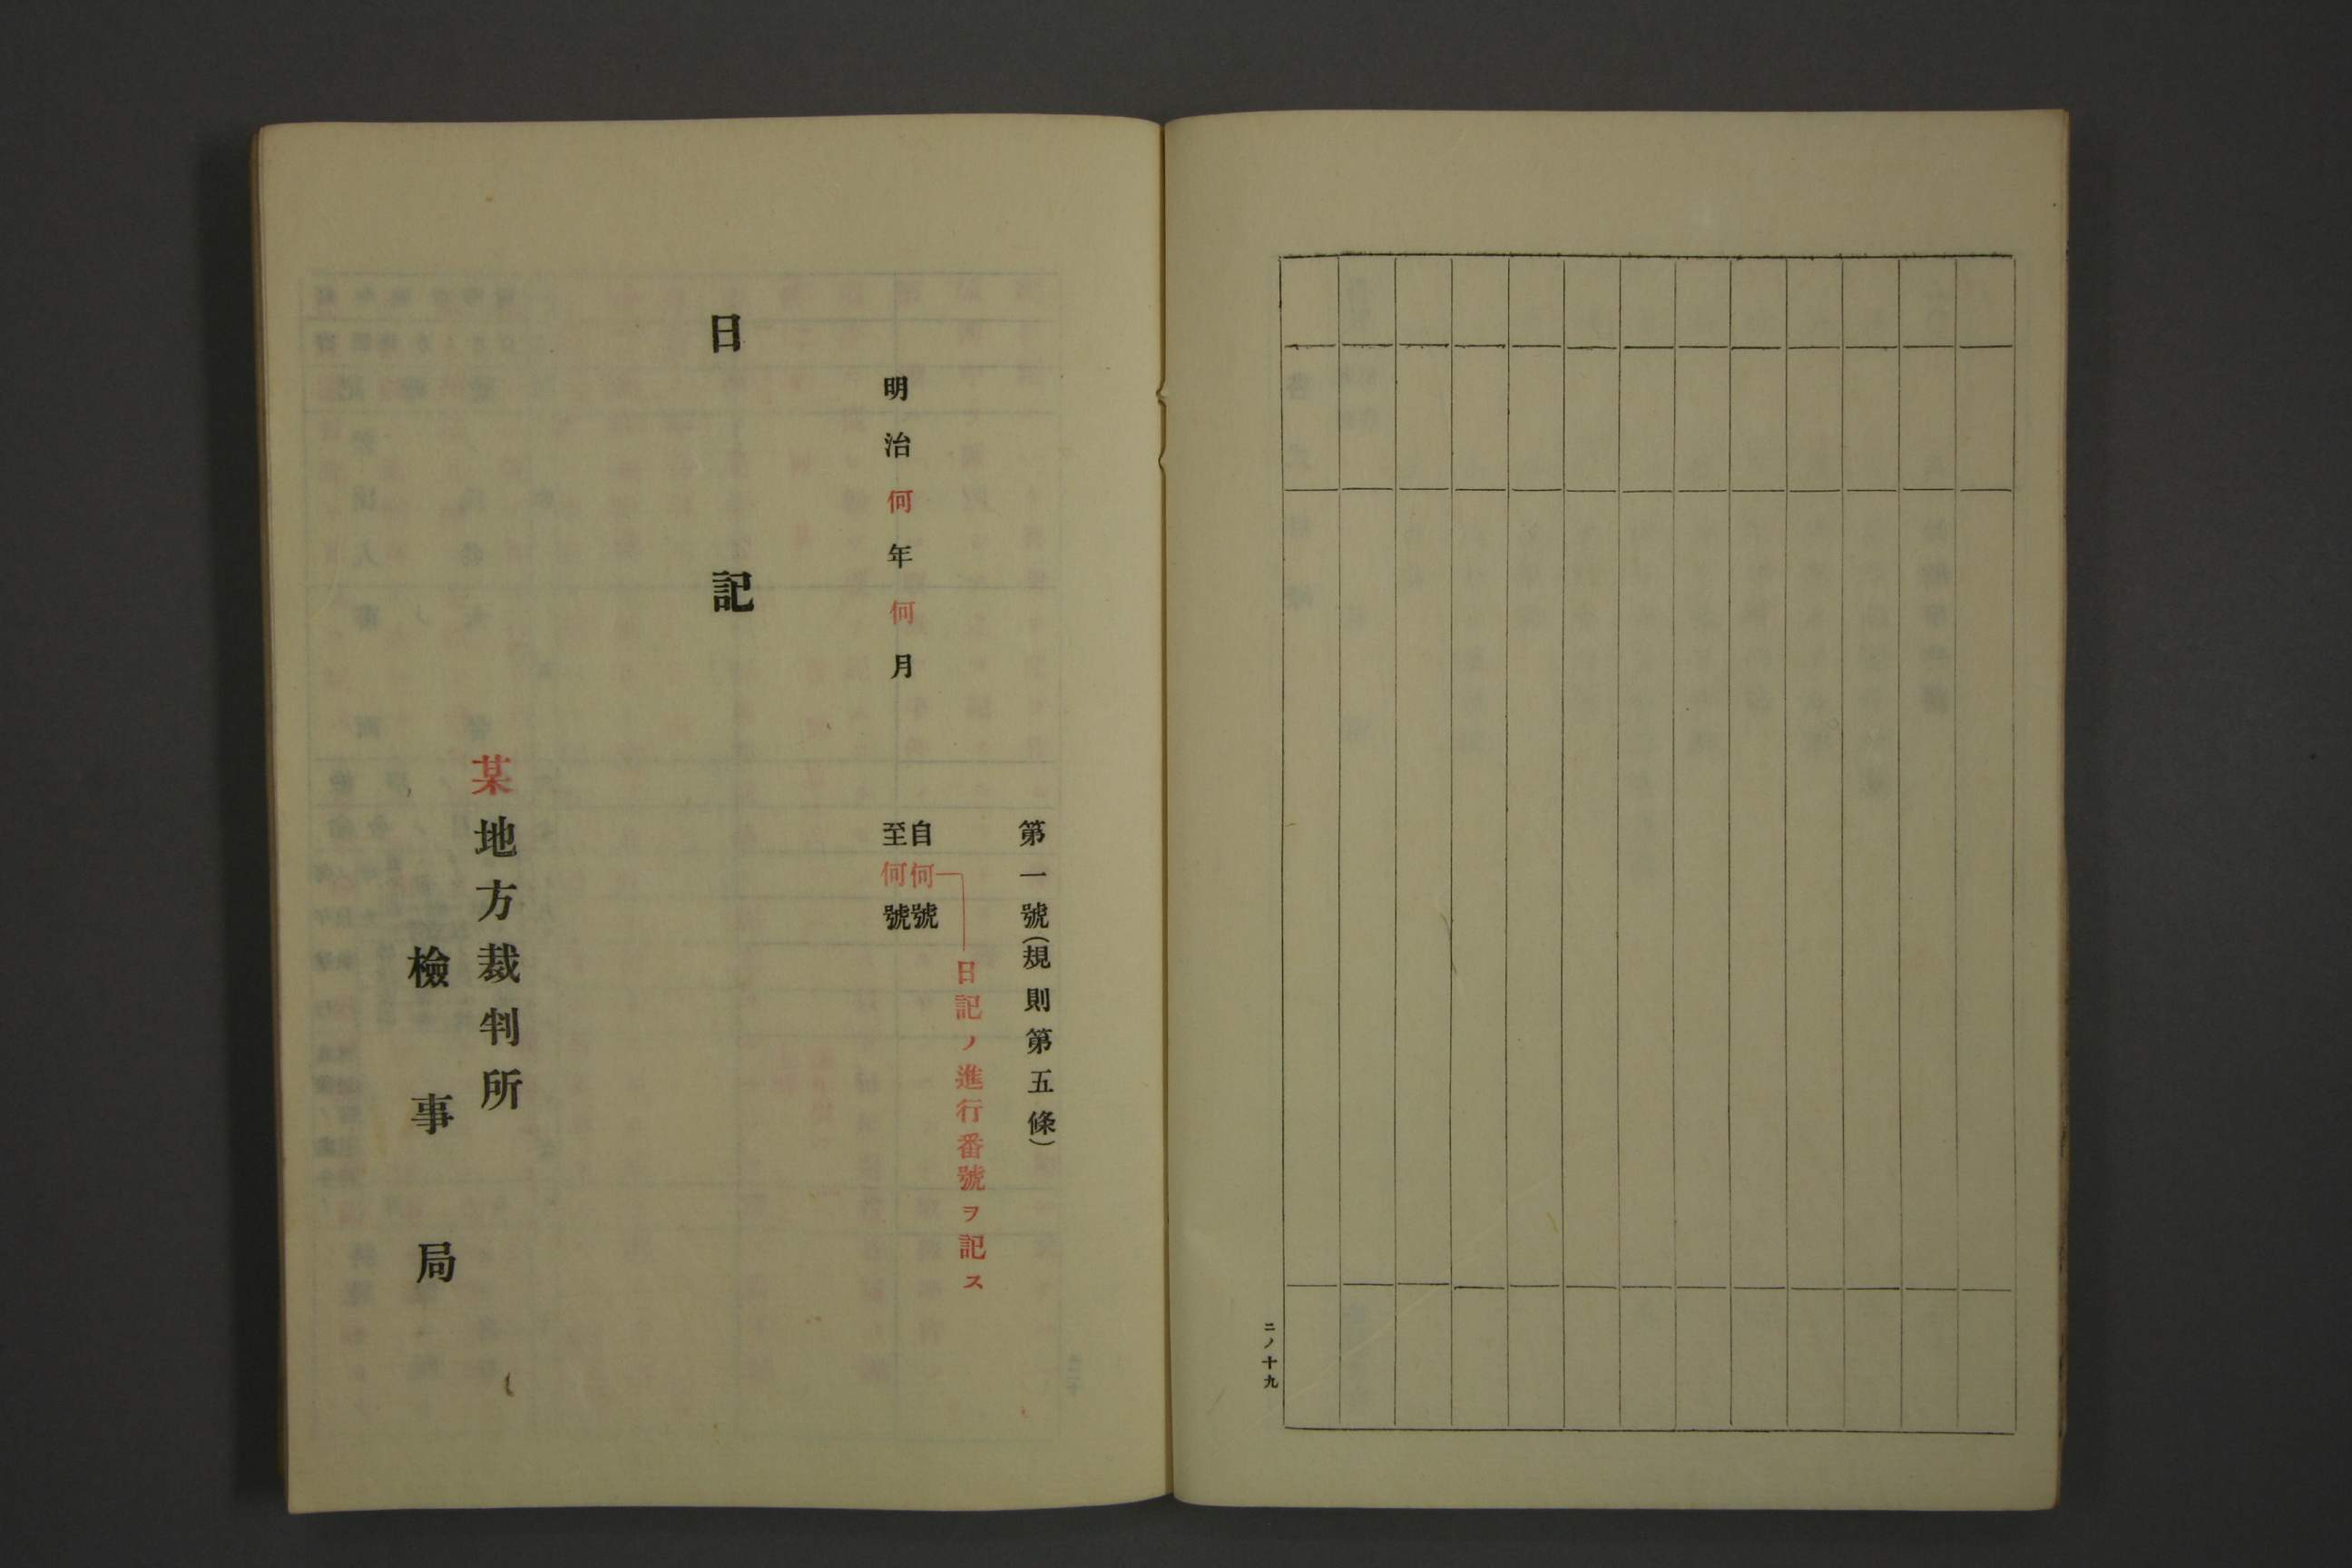 二ノ十九
第一號(規則第五條)
日記ノ進行番號ヲ記ス
自何號
至何號
明治何年何月
日記
某地方裁判所
檢事局